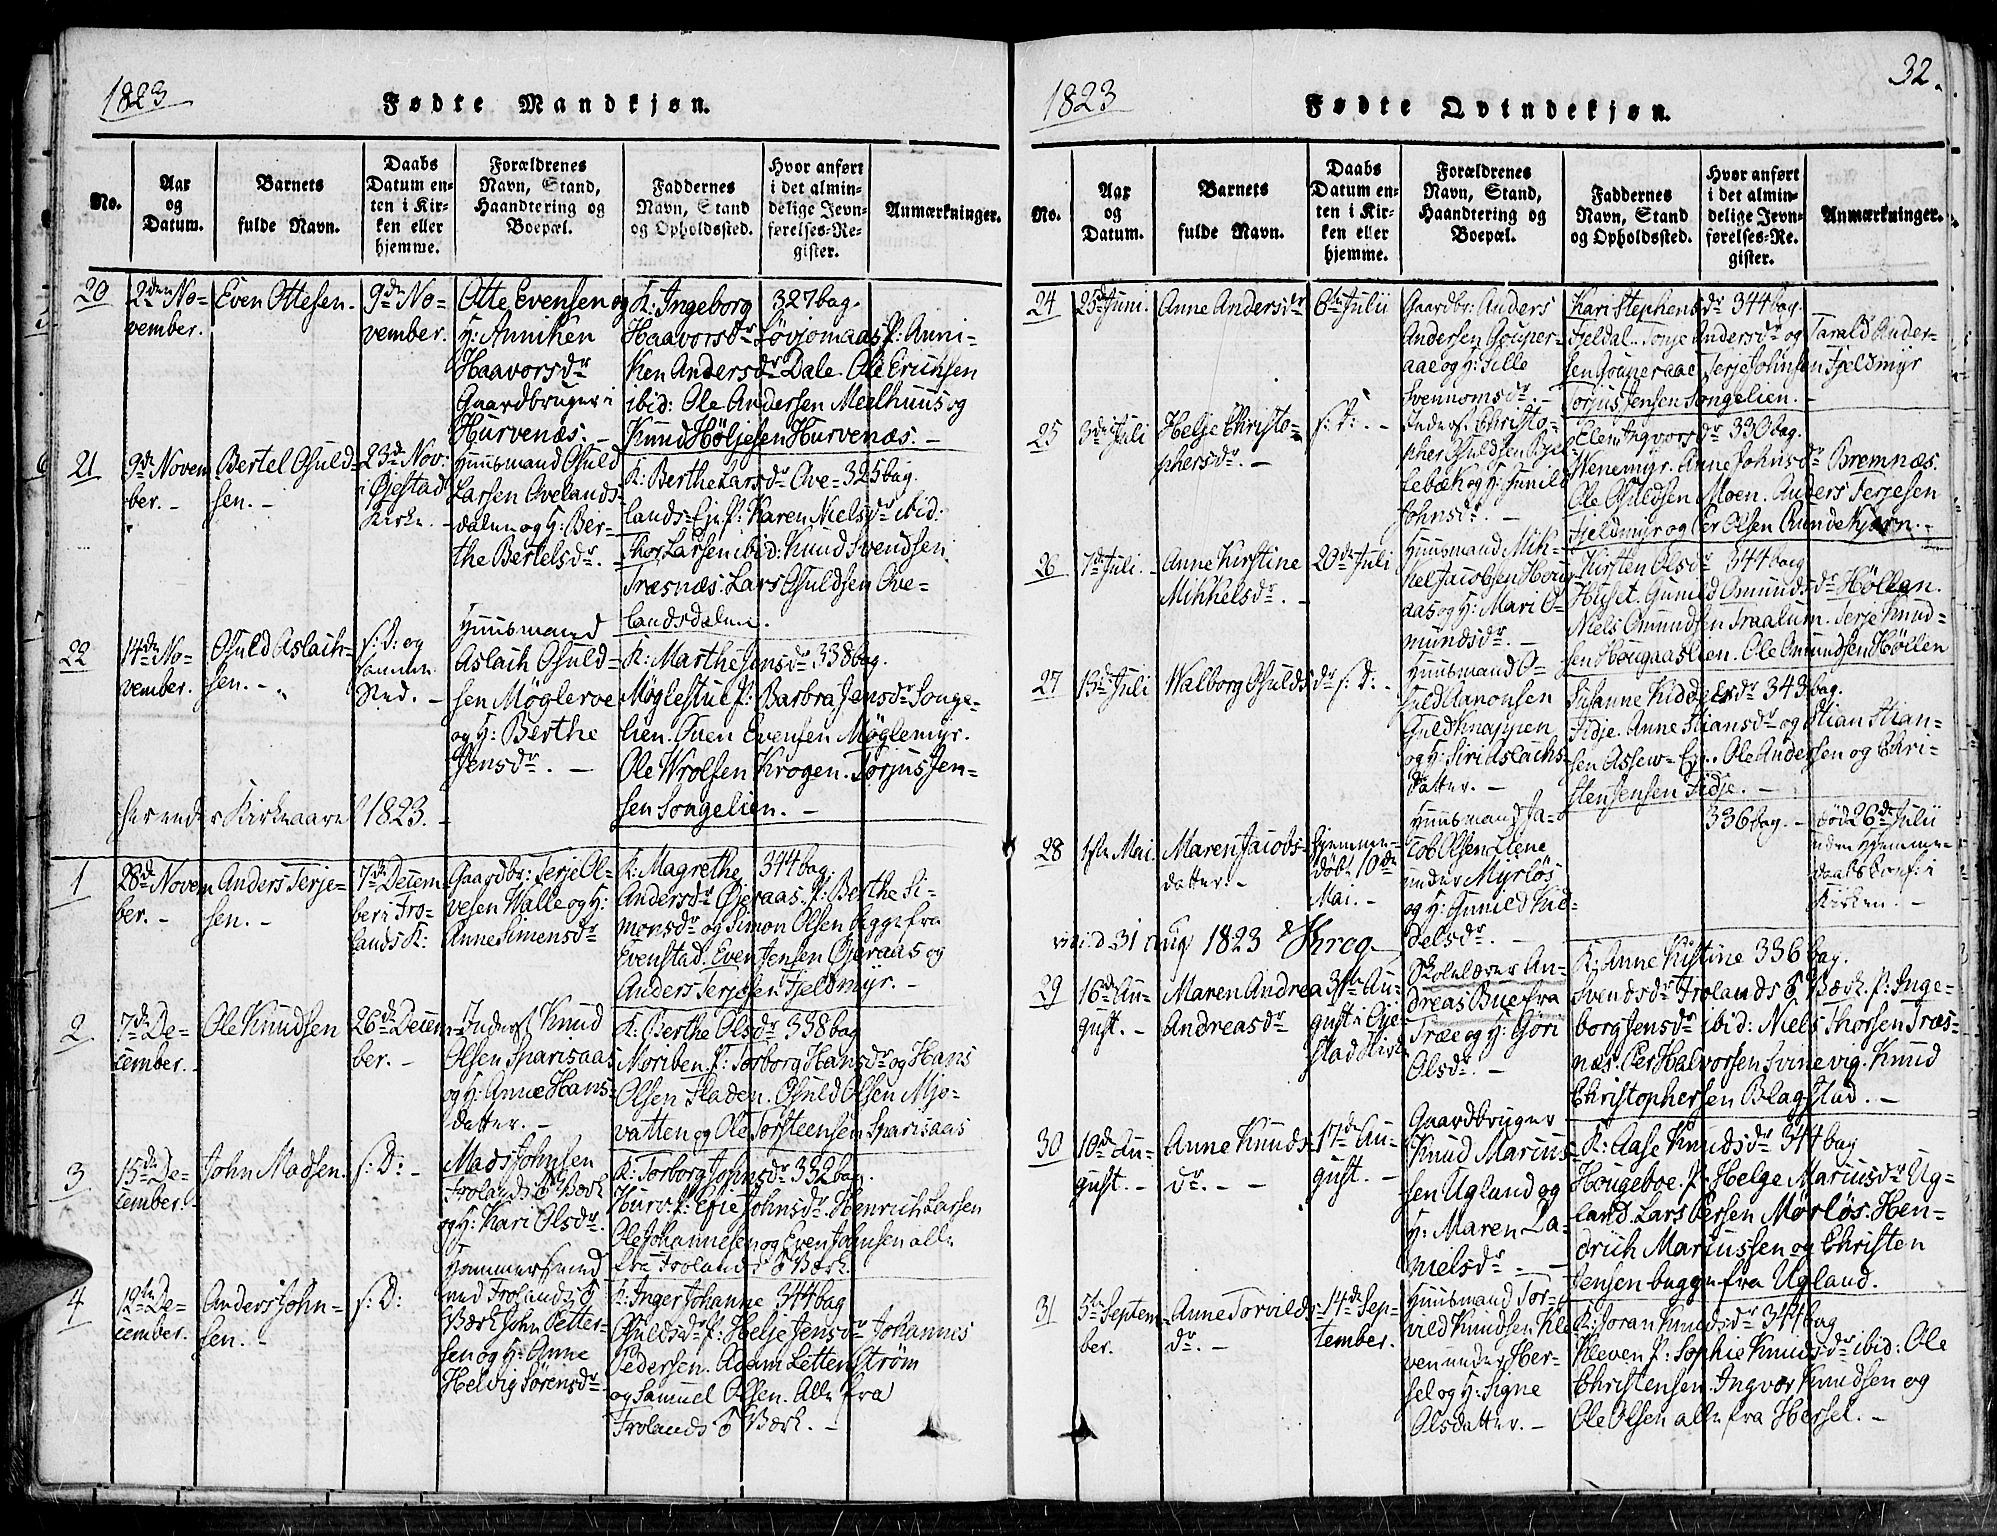 1823
Fødte Mandkjøn.
No.
Aar
og
Datum.
Barnets
fulde Navn.
Daabs
Datum en-
ten i Kir-
ken eller
hjemme.
Forældrenes
Navn, Stand,
Haandtering og
Boepæl.
Faddernes
Navn, Stand
og Opholdssted.
Hvor anført
i det almin-
delige Jevn-
førelses-Re-
gister.
Anmærkninger.
20
2den No-
vember.
Even Ottesen.
9de No-
vember.
Otte Evensen og
H: Anniken
Haavorsdr
Gaardbruger i
Hurvenæs.
K: Ingeborg 327 bag.
Haavorsdr Løvjomaas P: Anni-
ken Andersdr Dale. Ole Erichsen
ibid: Ole Andersen Meelhuus og
Knud Høljesen Hurvenæs. –
21
9de Novem
ber. –
Bertel Osuld-
sen. –
23de Nov:
i Øjestad
Kirke. –
Huusmand Osuld
Larsen Ovelands-
dalen og H: Ber-
the Bertelsdr. –
K: Berthe Larsdr Ove- 325 bag.
lands-Eje P: Karen Nielsdr ibid:
Thor Larsen ibid: Knud Svendsen
Træsnæs. Lars Osuldsen Ove-
landsdalen.
22
14de No-
vember.
Osuld Aslach-
sen. –
s: D: og
samme
Sted. –
Huusmand
Aslach Osuld-
sen Møglerve
og H: Berthe
Jensdr. –
K: Marthe Jensdr 338 bag.
Møglestue P: Barbra Jensdr Songe-
lien. Even Evensen Møglemyr.
Ole Wrolsen Krogen. Torjus Jen-
sen Songelien. –
her ender Kirkeaaret 1823. –
1
28de Novem
ber. –
Anders Terje-
sen. –
7de Decem
ber i Fro-
lands K:
Gaardbr: Terje Ol-
vesen Walle og H:
Anne Simensdr
K: Magrethe 344 bag.
Andersdr Øjeraas. P: Berthe Si-
monsdr og Simon Olsen begge fra
Evenstad. Even Jensen Øjeraas og
Anders Terjesen Fjeldmyr. –
2
7de De-
cember. –
Ole Knudsen
26de Decem
ber. –
Inderst Knud
Olsen Sparisaas
og H: Anne Hans-
datter. –
K: Berthe Olsdr 338 bag
Moriben P: Torborg Hansdr og Hans
Olsen Fladen. Osuld Olsen Mjo-
vatten og Ole Torsteensen Sparisaas
3
15de De-
cember. –
John Madsen.
s: D: –
Mads Johnsen
Frolands Værk
og H: Kari Olsdr.
K: Torborg Johnsdr 332 bag.
Hurv: P: Efie Johnsdr. Henrich Larsen
Ole Johannesen og Even Johnsen alle
fra Frolands Værk.
4
12te De-
cember.
Anders John-
sen. –
s: D:
Hammersmed
ved Frolands
Værk John Petter-
sen og H: Anne
Helvig Sørensdr
K: Inger Johanne 344 bag
Osuldsdr P: Helje Jensdr Johannis
Pedersen. Adam Lettenstrøm
og Samuel Olsen. Alle fra
Frolands Værk. –
32.
1823
Fødte Qvindekjøn.
No.
Aar
og
Datum.
Barnets
fulde Navn.
Daabs
Datum en-
ten i Kir-
ken eller
hjemme.
Forældrenes
Navn, Stand,
Haandtering og
Boepæl.
Faddernes
Navn, Stand
og Opholdssted.
Hvor anført
i det almin-
delige Jevn-
førelses-Re.
gister.
Anmærkninger.
24
25de Juni.
Anne Andersdr
6te Julii
Gaardbr: Anders
Andersen Gouper-
aae og H: Sille
Svennomsdr. –
Kari Stephensdr 344 bag.
Fjeldal. Tonje Andersdr og Tarald Ander-
sen Gouperaae Terje Johnsen Fjeldmyr
Torjus Jensen Songelien. –
25
3de Juli
Helje Christo-
phersdr. –
s: D: –
Inderst Christo-
pher Osuldsen Bjel-
lebæk og H: Gunild
Johnsdr. –
Elen Ingvorsdr 330 bag.
Wenemyr. Anne Johnsdr Bremnæs.
Ole Osuldsen Moen. Anders Terjesen
Fjeldmyr og Per Olsen Rundekjærn. –
26
7de Juli. –
Anne Kirstine
Mikkelsdr. –
20de Juli
Huusmand Mik-
kel Jacobsen Houg-
aas og H: Mari O-
mundsdr. –
Kirsten Olsdr 344 bag
Huset. Gunild Omundsdr Høllen.
Niels Omundsen Traalum. Terje Knud-
sen Hougaaslien. Ole Omundsen Høllen
27
13de Juli
Walborg Osuldsdr
s: D: –
Huusmand O-
suld Aanonsen
Guldknappen
og H: Siri Aslachs-
datter. –
Susanne Kiddelsdr 343 bag.
Fidje. Anne Stiansdr og Stian Stian-
sen Assew-Eje. Ole Andersen og Chri-
sten Jensen Fidje. –
28
1ste Mai.
Maren Jacobs-
datter. –
hjemme-
døbt 10de
Mai. –
Huusmand Ja-
cob Olsen Lene
under Myrløs
og H: Gunild Kid-
delsdr. –
336 bag. –
død 26de Julii
uden Hjemme-
daabs Conf: i
Kirken. –
vivid 31 Aug 1823 Krog
29
16de Au-
gust. –
Maren Andrea
Andreasdr
31te Au-
gust i Øje-
stad Kirk
Skolelærer An-
dreas Bue fra
Træe og H: Gori
Olsdr. –
K: Anne Kistine 336 bag.
Svendsdr Frolands Værk. P: Inge-
borg Jensdr ibid: Niels Thorsen Træs-
næs. Per Halvorsen Svinevig. Knud
Christophersen Blagstad. –
30
10de Au-
gust. –
Anne Knuds-
dr. – –
17de Au-
gust. –
Gaardbruger
Knud Marius-
sen Ugland og
H: Maren Da-
nielsdr. –
K: Aase Knudsdr 344 bag
Hougeboe. P: Helge Mariusdr Ug-
land. Lars Persen Mørløs. Hen-
drich Mariussen og Christen
Jensen begge fra Ugland.
31
5te Septem
ber.
Anne Torvilds-
dr. –
14de Sep-
tember.
Huusmand Tor-
vild Knudsen Kle-
ven under Her-
sel og H: Signe
Olsdatter. –
K: Joran Knudsdr 344 bag
Kleven P: Sophie Knudsdr ibid: Ole
Christensen. Ingvor Knudsen og
Ole Olsen alle fra Hersel. –